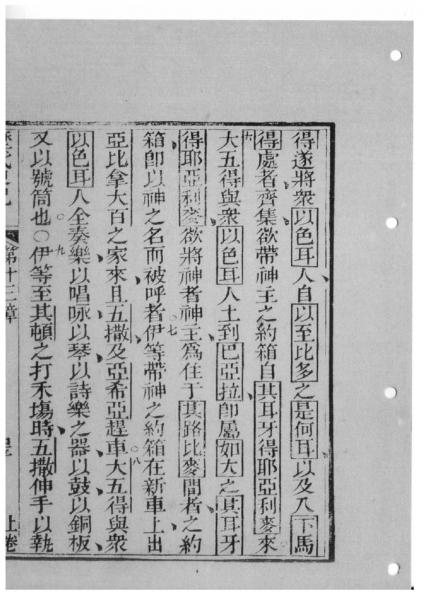 得遂將衆以色耳人自以至比多之是何耳以及八下馬
得處者齊集欲帶神主之約箱自其耳牙得耶亞利麥來
六
大五得與衆以色耳人上到巴亞拉卽屬如大之其耳牙
得耶亞利麥欲將神者神主爲住于其路比麥間者之約
七
箱卽以神之名而被呼者伊等帶神之約箱在新車上出
八
亞比拿大百之家來且五撒及亞希亞趕車大五得與衆
以色耳人全奏樂以唱咏以琴以詩樂之器以鼓以銅板
九
又以號筒也○伊等至其頓之打禾塲時五撒伸手以執
第十三章
上卷